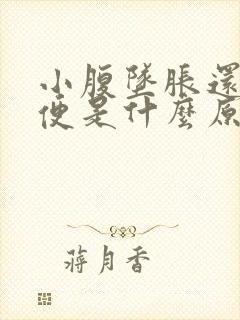 小腹墜脹還
便是什麼原
蔣月香